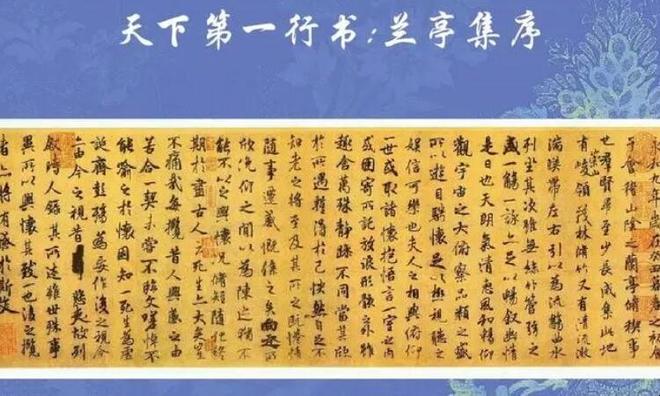 天下第一行书:兰亭集序
永和九年歲在癸丑暮春之初會
于會稽山陰之蘭亭脩禊事
也羣賢畢至少長咸集此地
有崇山峻領茂林脩竹又有清流激
湍暎帶左右引以為流觴曲水
列坐其次雖無絲竹管弦之
盛一觴一詠亦足以暢敘幽情
是日也天朗氣清惠風和暢仰
觀宇宙之大俯察品類之盛
所以遊目騁懷足以極視聽之
娛信可樂也夫人之相與俯仰
一世或取諸懷抱悟言一室之內
或因寄所託放浪形骸之外雖
趣舍萬殊靜躁不同當其欣
於所遇蹔得於己怏然自足不
知老之將至及其所之既惓情
隨事遷感慨係之矣向之所
欣俛仰之間以為陳迹猶不
能不以之興懷況脩短隨化終
期於盡古人云死生亦大矣豈
不痛哉每攬昔人興感之由
若合一契未嘗不臨文嗟悼不
能喻之於懷固知一死生為虛
誕齊彭殤為妄作後之視今
亦由今之視昔悲夫故列
敘時人錄其所述雖世殊事
異所以興懷其致一也後之攬
者亦將有感於斯文